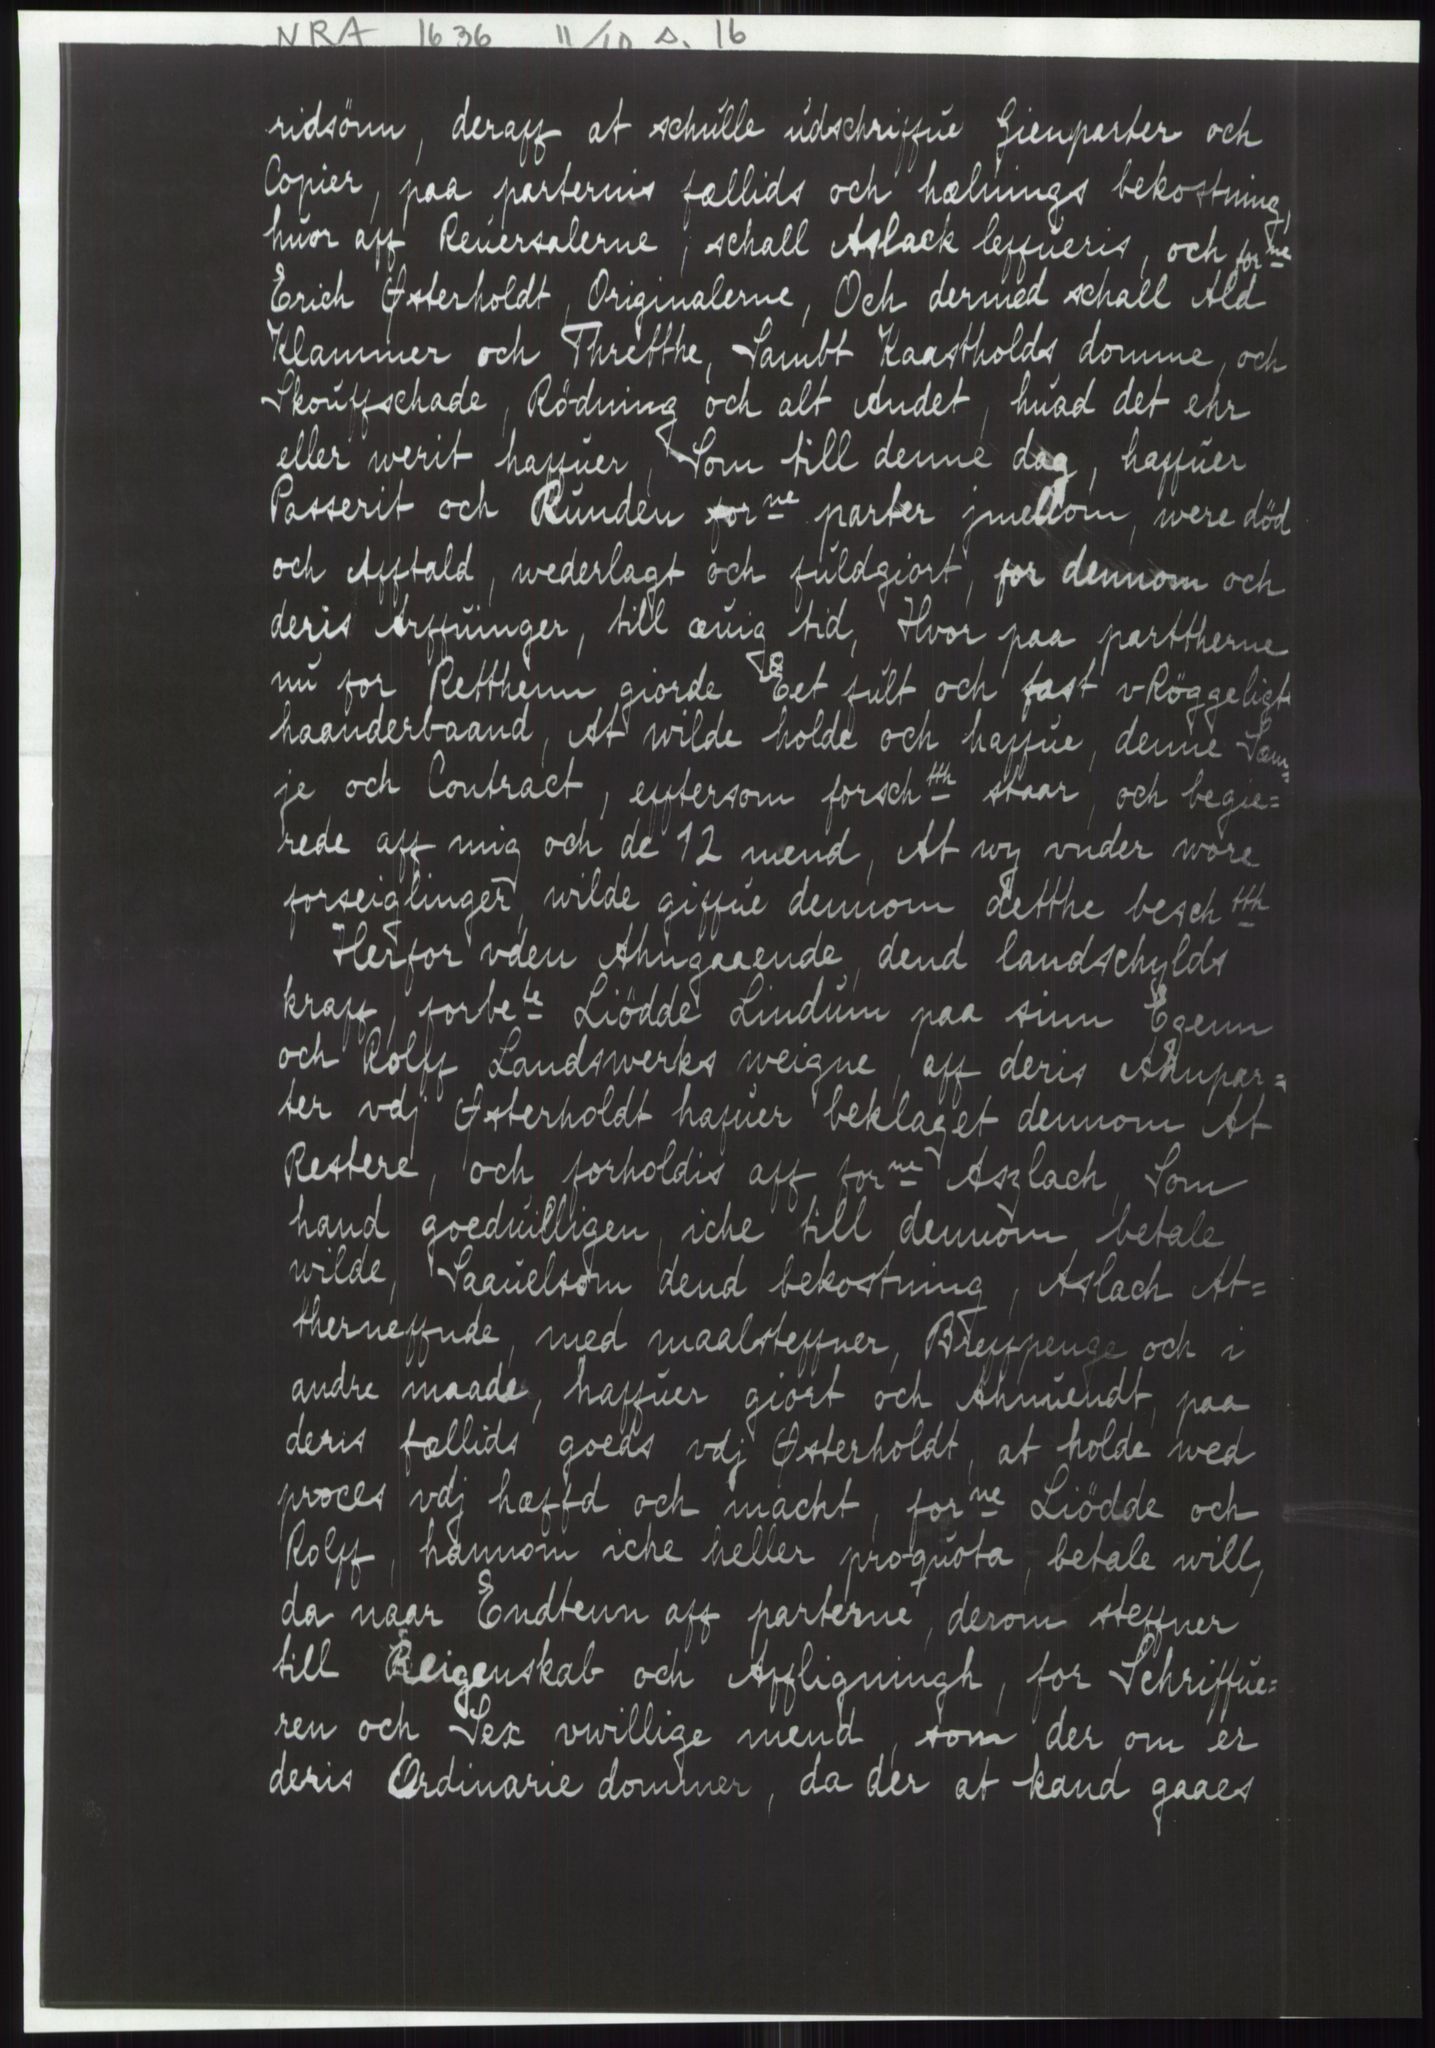 NRA 1636 11/10 s. 16
ridsönn, deraff at schulle udschriffue Gienparter och
Copier, paa parternis fællids och hælnings bekostning,
huor aff Reuersalerne, schall Aslack leffueris, och forne
Erich Østerholdt, Originalerne, Och dermed schall Ald
Klammer och Thretthe, Sambt Kaastholds domme, och
Skouffschade, Rödning och alt Andet, huad det ehr
eller werit haffuer, Som till denne dag, haffuer
Passerit och Runden forne parter jmellom, were död
och Afftald, wederlagt och fuldgiort, for dennom och
deris Arffuinger, till æuig tid, Hvor paa parttherne
nu for Retthenn giorde Eet fult och fast vRöggeligt
haanderbaand, At wilde holde och haffue, denne Sam-
je och Contract, efftersom forschtth staar, och begie=
rede aff mig och de 12 mend, At wy vnder wore
forseiglinger, wilde giffue dennom detthe beschtth
Herfor vden Ahngaaende, dend landschylds
kraff, forbete Liödde Lindum paa sinn Egenn
och Rolff Landswerks weigne, aff deris Ahnpar=
ter vdj Østerholdt hafuer beklaget dennom At
Restere, och forholdis aff forne Aszlach, Som
hand goeduilligen, iche till dennom betale
wilde, Saauelsom dend bekostning, Aslach At=
therneffnde, med maalsteffner, Breffpenge och i
andre maade, haffuer giort och Ahnuendt, paa
deris fællids goeds vdj Østerholdt, at holde wed
proces vdj hæffd och macht, forne Liödde och
Rolff, hannom iche heller pro quota, betale will,
da naar Endtenn aff parterne, derom steffner
till Reigenskab och Affligningh, for Schriffue=
ren och Sex vwillige mend, som der om er
deris Ordinarie dommer, da der at kand gaaes